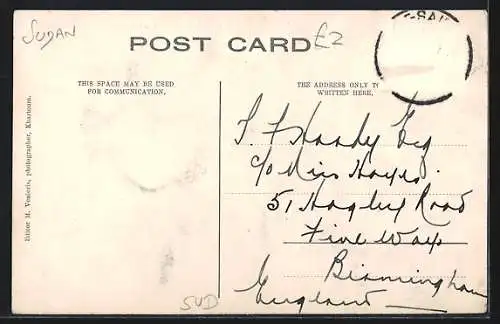 SUDAN
POST CARD
£2
THIS SPACE MAY BE USED
FOR COMMUNICATION.
THE ADDRESS ONLY TO
WRITTEN HERE.
Editor M. Venieris, photographer, Khartoum.
Esq
c/o Miss Hayes.
51 Hagley Road
Five Ways
Birmingham
England
SUD